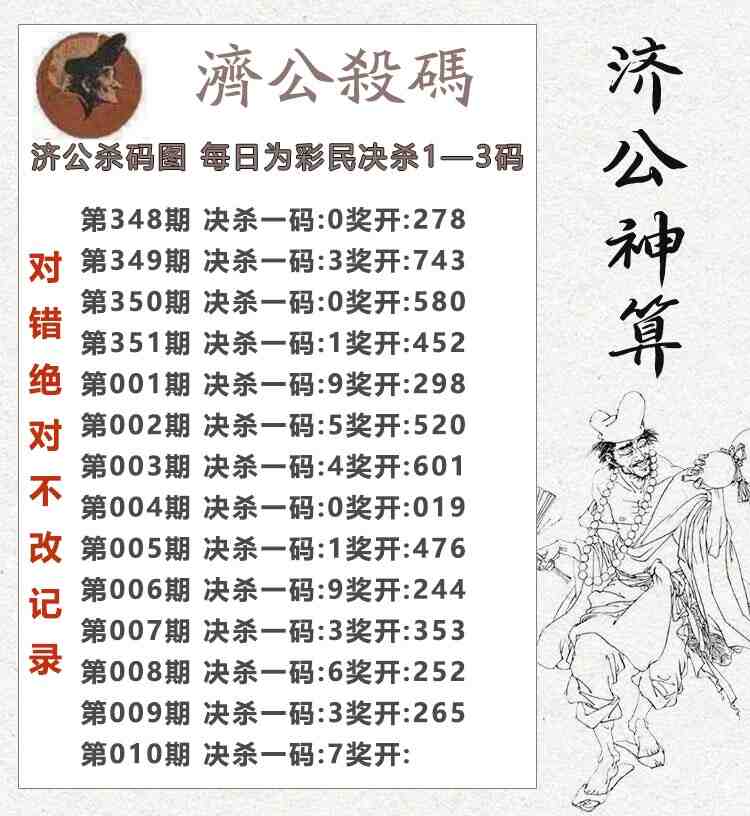 濟公殺碼
济公杀码图 每日为彩民决杀1—3码
第348期 决杀一码:0奖开:278
第349期 决杀一码:3奖开:743
第350期 决杀一码:0奖开:580
第351期 决杀一码:1奖开:452
第001期 决杀一码:9奖开:298
第002期 决杀一码:5奖开:520
第003期 决杀一码:4奖开:601
第004期 决杀一码:0奖开:019
第005期 决杀一码:1奖开:476
第006期 决杀一码:9奖开:244
第007期 决杀一码:3奖开:353
第008期 决杀一码:6奖开:252
第009期 决杀一码:3奖开:265
第010期 决杀一码:7奖开:
对错绝对不改记录
济公神算